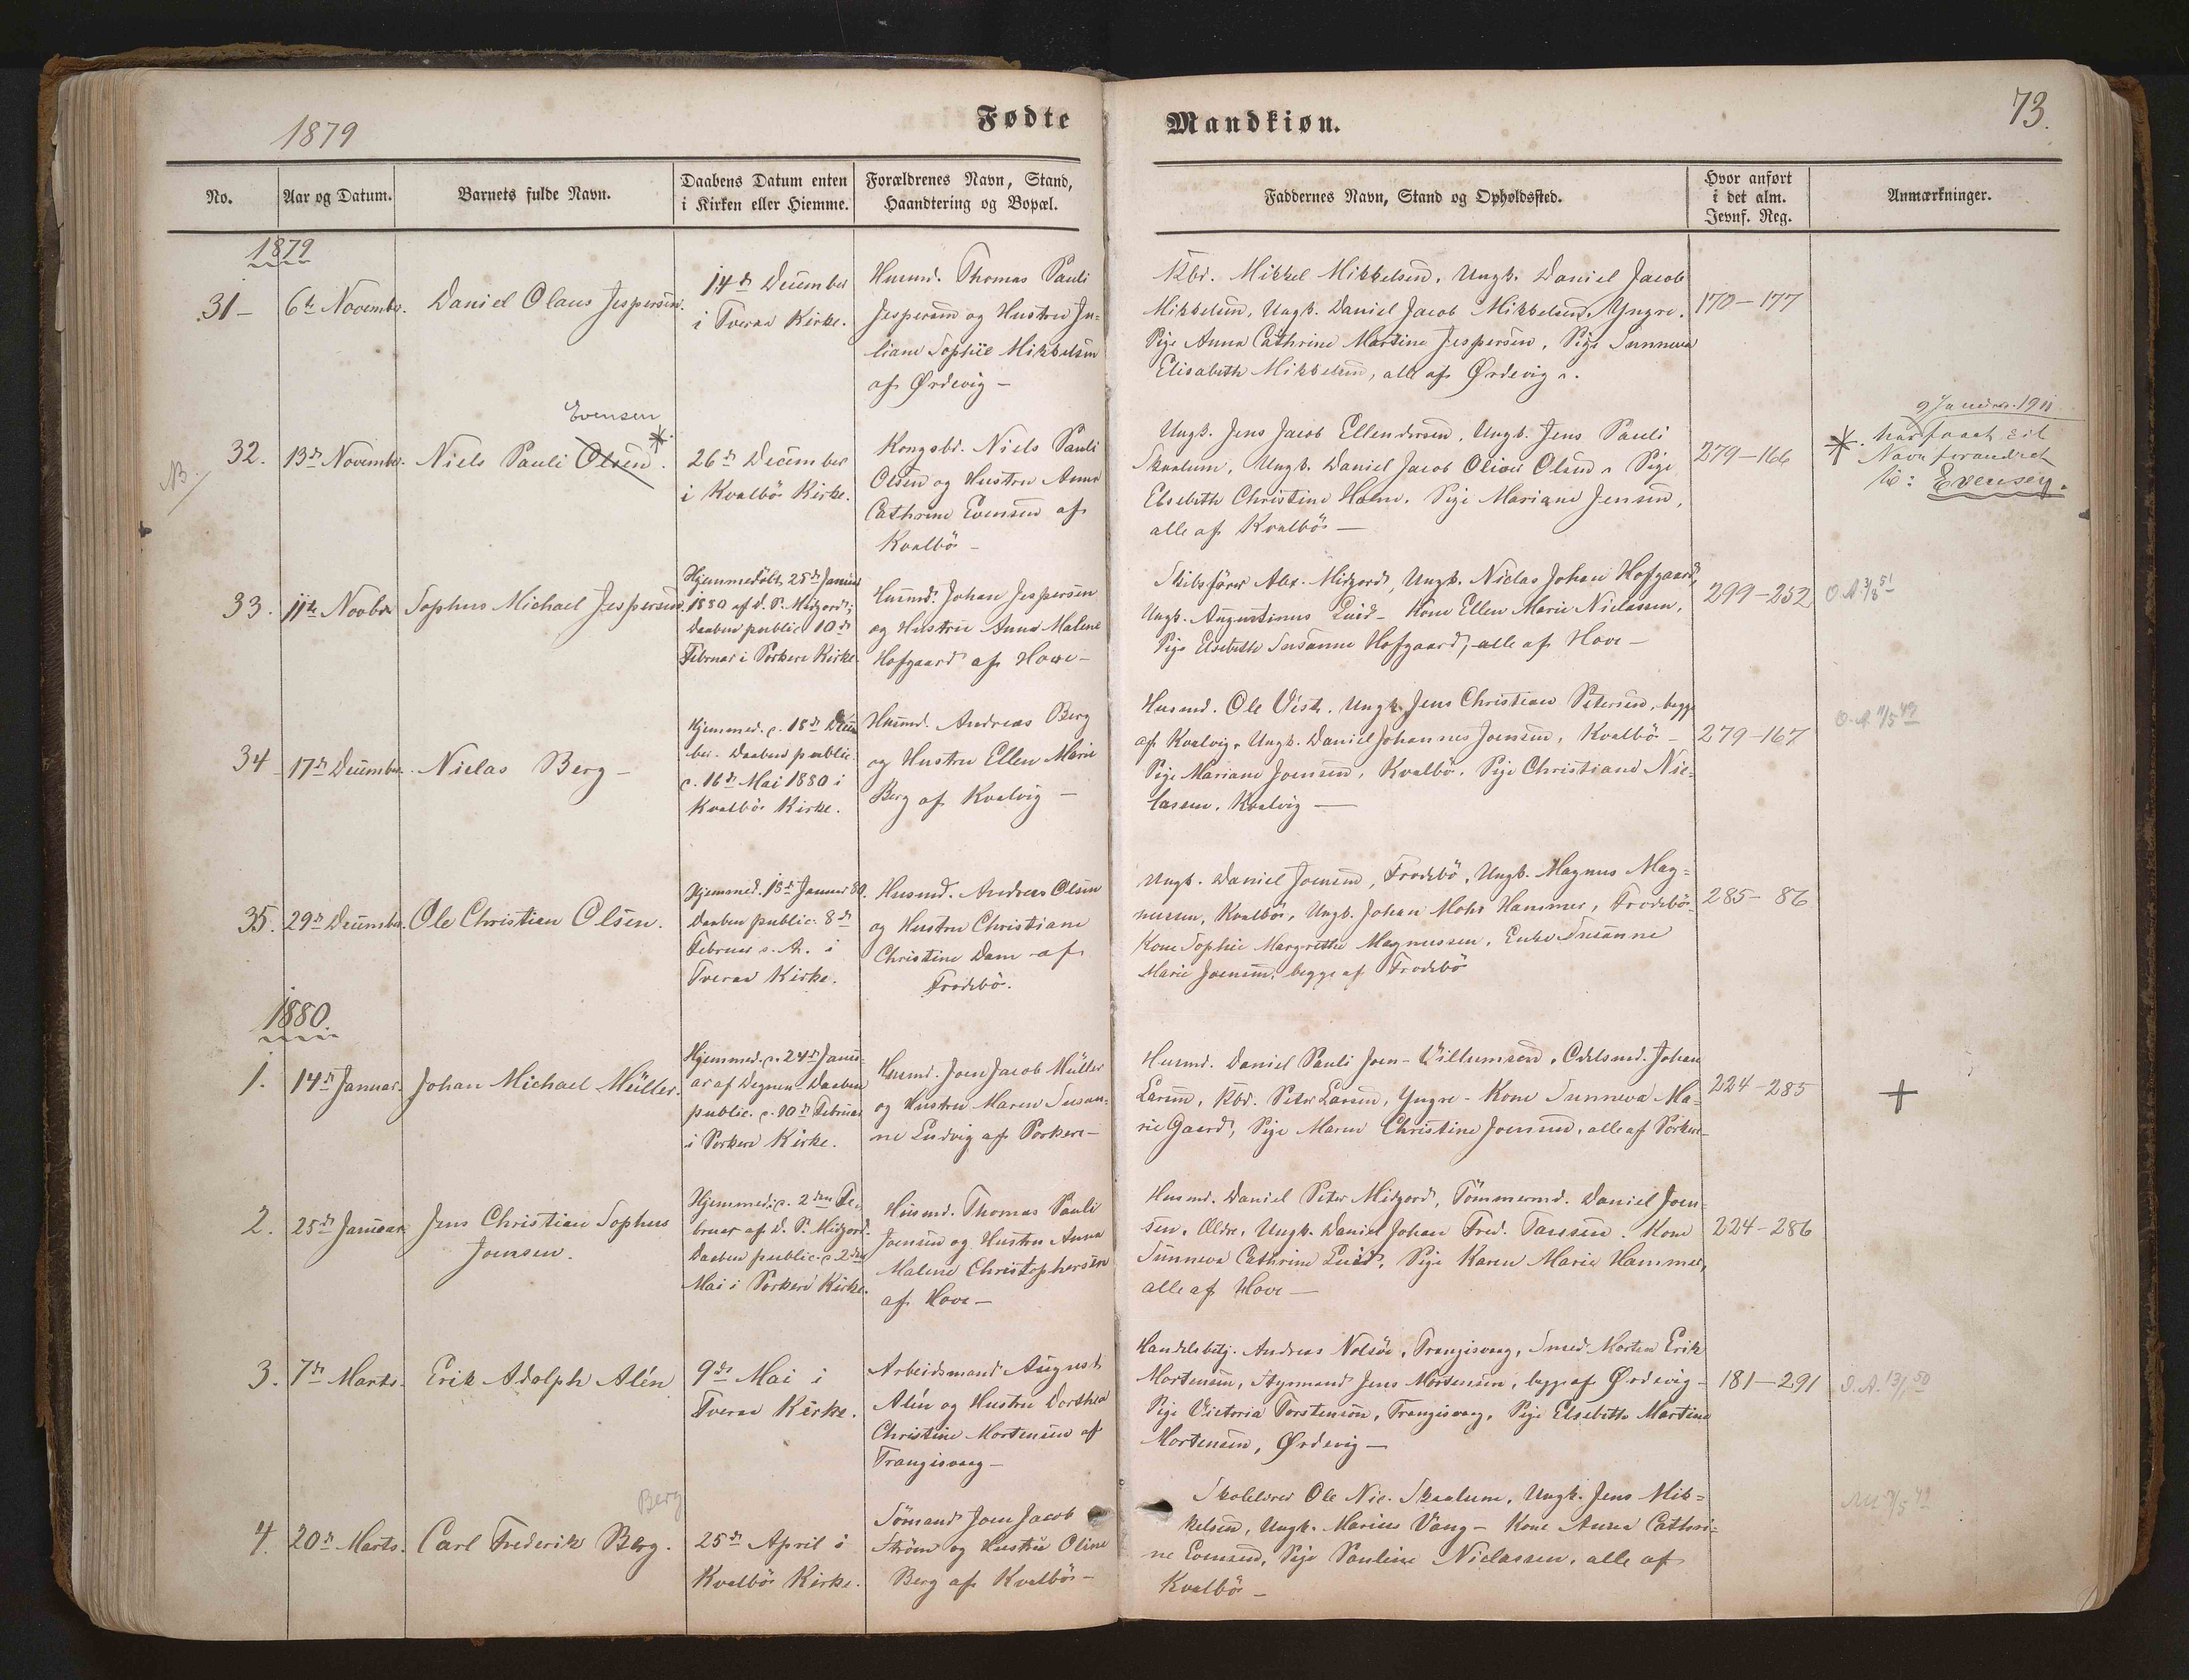 1879
Fødte
Mandkiøn.
73.
No.
Aar og Datum.
Barnets fulde Navn.
Daabens Datum enten
i Kirken eller Hiemme.
Forældrenes Navn, Stand,
Haandtering og Bopæl.
Faddernes Navn, Stand og Opholdssted.
Hvor anført
i det alm.
Jevnf. Reg.
Anmærkninger.
1879
31 –
6te Novembr.
Daniel Olaus Jespersen.
14de December
i Tveraa Kirke.
Husmd. Thomas Pauli
Jespersen og Hustru Ju-
liane Sophie Mikkelsen
af Ørdevig –
Kbd. Mikkel Mikkelsen, Ungk. Daniel Jacob
Mikkelsen, Ungk. Daniel Jacob Mikkelsen, Yngre.
Pige Anna Cathrine Martine Jespersen, Pige Sunneva
Elisabeth Mikkelsen, alle af Ørdevig
170–177
NB.
32.
13de Novembr.
Evensen
Niels Pauli Olsen.
26de December
i Kvalbö Kirke.
Kongsbd. Niels Pauli
Olsen og Hustru Anna
Cathrine Evensen af
Kvalbö –
Ungk. Jens Jacob Ellendersen, Ungk. Jens Pauli
Skaalum, Ungk. Daniel Jacob Oliver Olsen, Pige
Elsebeth Christine Holm, Pige Mariane Jensen,
alle af Kvalbö –
279–166
9 Januar. 1911
har faaet sit
Navn forandret
til: Evensen.
33.
11te Novbr
Sophus Michael Jespersen.
Hjemmedöbt 25de Januar
1880 af D. P. Midjord;
Daaben public. 10de
Februar i Porkere Kirke.
Husmd. Johan Jespersen
og Hustru Anna Malene
Hofgaard af Hove –
Skibsförer Alex. Midjord, Ungk. Niclas Johan Hofgaard,
Ungk. Augustinus Luid – Kone Ellen Marie Niclassen,
Pige Elsebeth Susanne Hofgaard, alle af Hove –
299–252
O.A. 3/8 51
34
17de Decembr.
Niclas Berg –
Hjemmed. c. 18de Decem
ber. Daaben public.
c. 16de Mai 1880 i
Kvalbö Kirke.
Husmd. Andreas Berg
og Hustru Ellen Marie
Berg af Kvalvig –
Husmd. Ole Vest, Ungk. Jens Christian Petersen, begge
af Kvalvig, Ungk. Daniel Johannes Joensen, Kvalbö –
Pige Mariane Joensen, Kvalbö, Pige Christiane Nic-
lassen, Kvalvig –
279–167
O.A. 11/5 49
35.
29de Decembr.
Ole Christian Olsen.
Hjemmed. 15de Januar 80.
Daaben public. 8de
Februar s. A. i
Tveraa Kirke.
Husmd. Andreas Olsen
og Hustru Christiane
Christine Dam af
Frodebö.
Ungk. Daniel Joensen, Frodebö, Ungk. Magnus Mag-
nussen, Kvalbö, Ungk. Johan Mohr Hammer, Frodebö –
Kone Sophie Margrethe Magnussen, Enke Susanne
Marie Joensen, begge af Frodebö
285–86
1880.
1.
14de Januar.
Johan Michael Müller.
Hjemmed. c. 24de Janu-
ar af Degnen. Daaben
public. c. 10de Februar
i Porkere Kirke.
Husmd. Joen Jacob Müller
og Hustru Maren Susan-
ne Ludvig af Porkere –
Husmd. Daniel Pauli Joen-Villumsen, Odelsmd. Johan
Larsen, Kbd. Peter Larsen, Yngre – Kone Sunneva Ma-
rie Gaard, Pige Maren Christine Joensen, alle af Porkere –
224–285
+
2.
25de Januar
Jens Christian Sophus
Joensen.
Hjemmed. c. 2den Fe-
bruar af D. P. Midjord.
Daaben public. c. 2den
Mai i Porkere Kirke.
Husmd. Thomas Pauli
Joensen og Hustru Anna
Malene Christophersen
af Hove –
Husmd. Daniel Peter Midjord, Tömmermd. Daniel Joen-
sen, Ældre, Ungk. Daniel Johan Fred. Taussen. Kone
Sunneva Cathrine Luid, Pige Karen Marie Hammer,
alle af Hove –
224–286
3.
7de Marts.
Erik Adolph Alén
9de Mai i
Tveraa Kirke.
Arbeidsmand August
Alén og Hustru Dorthea
Christine Mortensen af
Trangisvaag –
Handelsbetj. Andreas Nolsöe, Trangisvaag, Smed Morten Erik
Mortensen, Styrmand Jens Mortensen, begge af Ørdevig –
Pige Victoria Torstensen, Trangisvaag, Pige Elsebeth Martine
Mortensen, Ørdevig –
181–291
4.
20de Marts.
Berg
Carl Frederik Berg.
25de April i
Kvalbö Kirke.
Sömand Joen Jacob
Ström og Hustru Oline
Berg af Kvalbö –
Skolelærer Ole Nic. Skaalum, Ungk. Jens Mik-
kelsen, Ungk. Marius Vang – Kone Anna Cathri-
ne Evensen, Pige Pauline Niclassen, alle af
Kvalbö –